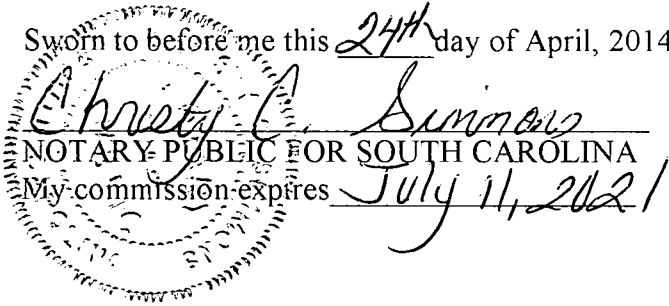 Sworn to before me this 24th day of April, 2014
Christy C. Simmons
NOTARY PUBLIC FOR SOUTH CAROLINA
My commission expires July 11, 2021